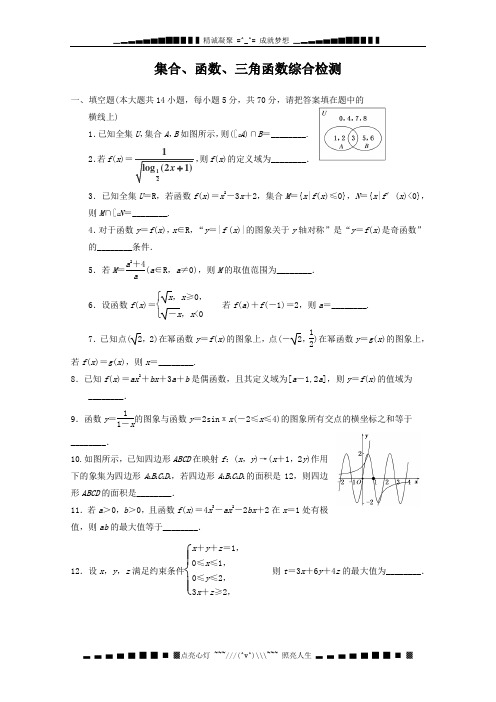 ▁▂▃▄▅▆▇█▉▊▋▌精诚凝聚 =^_^= 成就梦想 ▁▂▃▄▅▆▇█▉▊▋▌
集合、函数、三角函数综合检测
一、填空题(本大题共14小题，每小题5分，共70分，请把答案填在题中的
横线上)
1.已知全集U,集合A,B如图所示,则(∁UA)∩B=________.
U
0,4,7,8
1,2 3 5,6
A B
2.若f(x)=1/√(log_{1/2}(2x+1)),则f(x)的定义域为________.
3．已知全集U=R，若函数f(x)=x²-3x+2，集合M={x|f(x)≤0}，N={x|f′(x)<0}，
则M∩∁UN=________.
4.对于函数y=f(x)，x∈R，“y=|f(x)|的图象关于y轴对称”是“y=f(x)是奇函数”
的________条件.
5．若M=(a²+4)/a(a∈R，a≠0)，则M的取值范围为________．
6．设函数f(x)={√x，x≥0， √-x，x<0 若f(a)+f(-1)=2，则a=________.
7．已知点(√2，2)在幂函数y=f(x)的图象上，点(-√2，1/2)在幂函数y=g(x)的图象上，
若f(x)=g(x)，则x=________.
8．已知f(x)=ax²+bx+3a+b是偶函数，且其定义域为[a-1,2a]，则y=f(x)的值域为
________．
9．函数y=1/(1-x)的图象与函数y=2sinπx(-2≤x≤4)的图象所有交点的横坐标之和等于
________．
10.如图所示，已知四边形ABCD在映射f：(x，y)→(x+1，2y)作用
下的象集为四边形A₁B₁C₁D₁，若四边形A₁B₁C₁D₁的面积是12，则四边
形ABCD的面积是________．
11．若a＞0，b＞0，且函数f(x)=4x³-ax²-2bx+2在x=1处有极
值，则ab的最大值等于________．
12．设x，y，z满足约束条件{x+y+z=1， 0≤x≤1， 0≤y≤2， 3x+z≥2， 则τ=3x+6y+4z的最大值为________．
▁▂▃▄▅▆▇█ ■ ▓点亮心灯 ~~~///(^v^)\\\~~~ 照亮人生 ▃▄▅▆▇█ ■ ▓